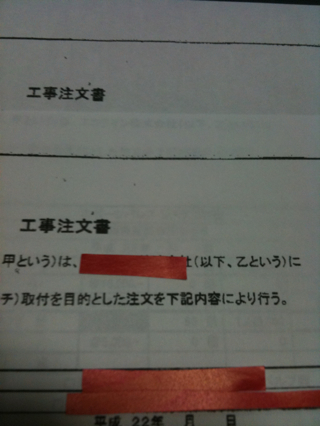 工事注文書
工事注文書
甲という)は、 社(以下、乙という)に
チ)取付を目的とした注文を下記内容により行う。
平成 22年 月 日